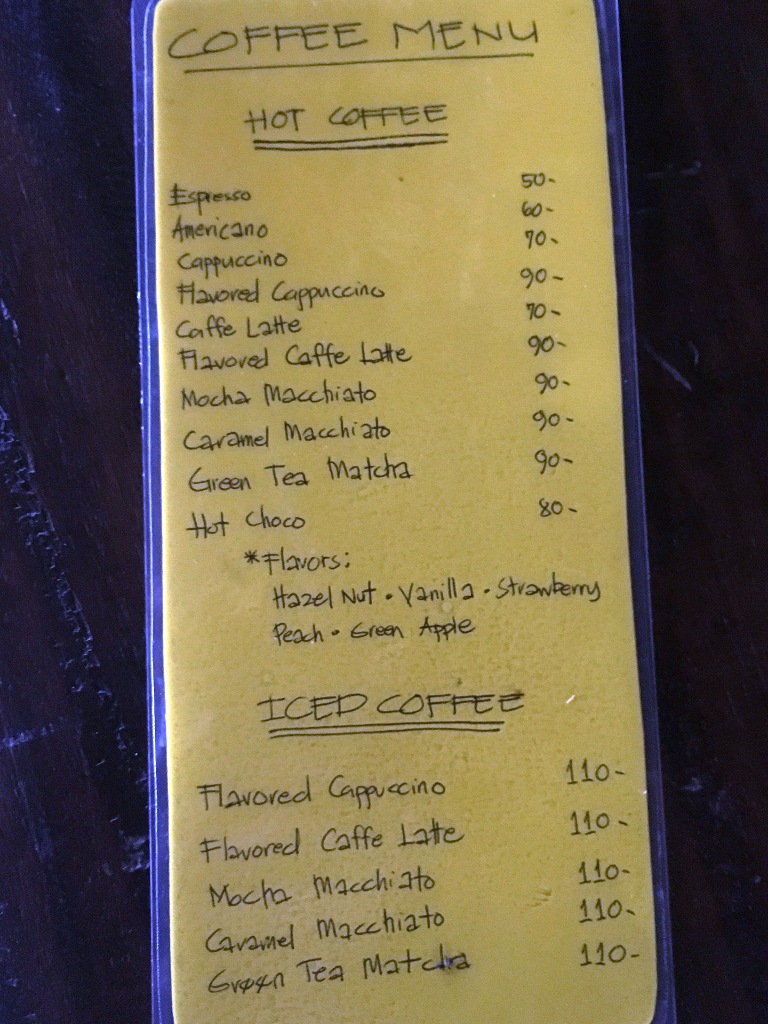 COFFEE MENU
HOT COFFEE
Espresso 50-
Americano 60-
Cappuccino 70-
Flavored Cappuccino 90-
Caffe Latte 70-
Flavored Caffe Latte 90-
Mocha Macchiato 90-
Caramel Macchiato 90-
Green Tea Matcha 90-
Hot Choco 80-
*Flavors:
Hazel Nut • Vanilla • Strawberry
Peach • Green Apple
ICED COFFEE
Flavored Cappuccino 110-
Flavored Caffe Latte 110-
Mocha Macchiato 110-
Caramel Macchiato 110-
Green Tea Matcha 110-